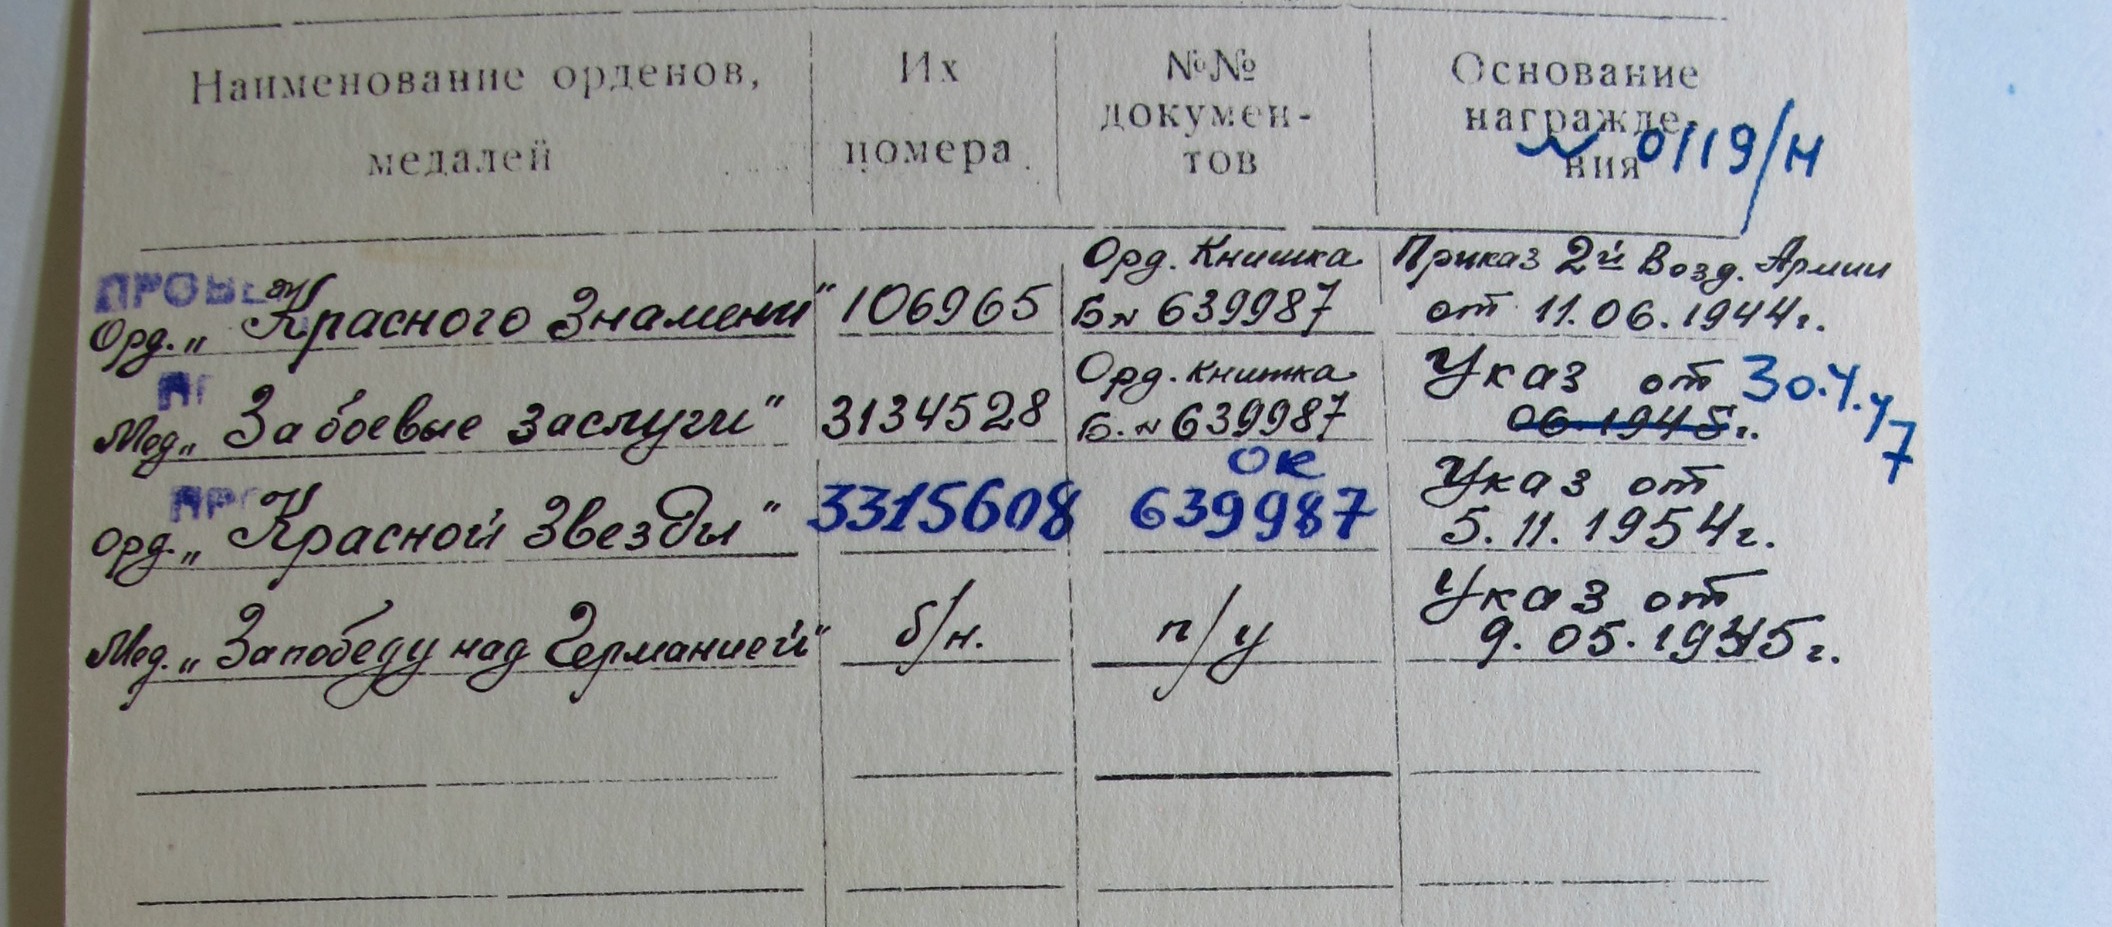 Наименование орденов,
медалей
Их
номера
№№
докумен-
тов
Основание
награжде-
ния
№ 0119/н
ПРОВЕ
Орд. „Красного Знамени"
106965
Орд. Книшка
Б№ 639987
Приказ 2й Возд. Армии
от 11.06.1944г.
Мед. „За боевые заслуги"
3134528
Орд. Книшка
Б.№ 639987
Указ от 30.4.47
06.1945г.
ПР
Орд. „Красной Звезды"
3315608
ОК
639987
Указ от
5.11.1954г.
Мед. „За победу над Германией"
б/н.
п/у
Указ от
9.05.1945г.